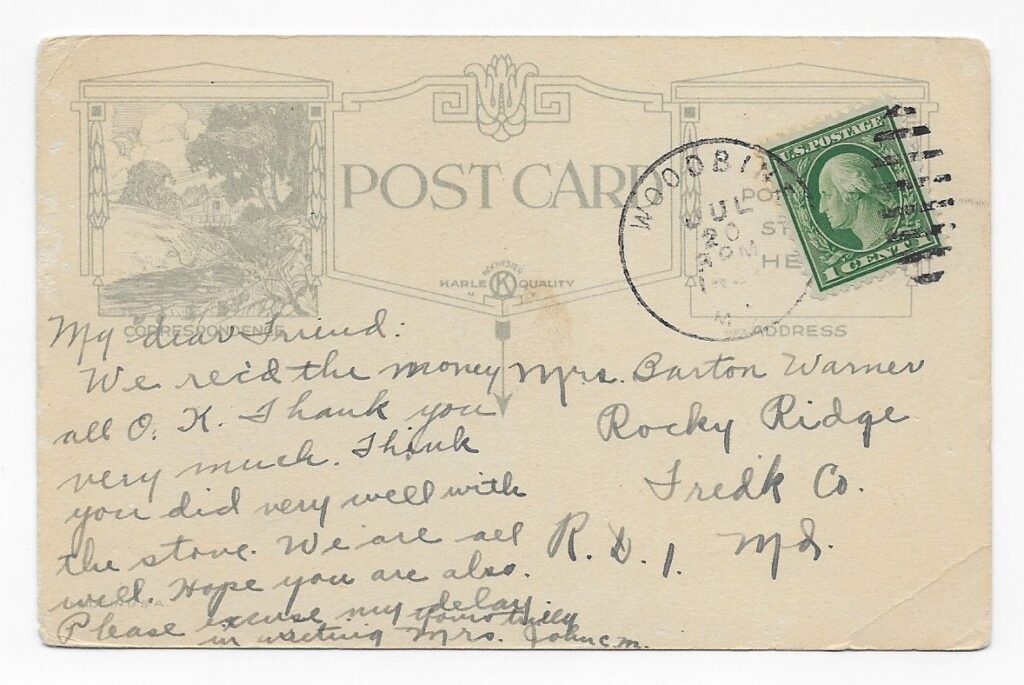 POST CARD
WOODBINE
JUL
20
3PM
M
U.S. POSTAGE
1 CENT
PO
ST
HE
ROCHESTER
HARLE K QUALITY
N. Y.
CORRESPONDENCE
ADDRESS
My dear Friend:
We rec'd the money
all O. K. Thank you
very much. Think
you did very well with
the stove. We are all
well. Hope you are also.
Please excuse my delay
in writing
yours truly
Mrs. John C. M.
Mrs. Barton Warner
Rocky Ridge
Fredk Co.
R. D. 1. Md.